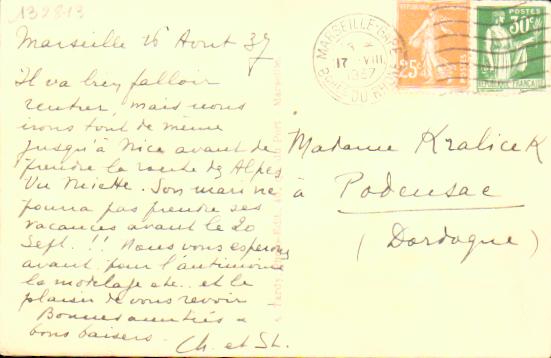 132813
Marseille 16 Août 37
Il va bien falloir
rentrer, mais nous
irons tout de même
jusqu'à Nice avant de
prendre la route des Alpes
Vu Miette. Son mari ne
pourra pas prendre ses
vacances avant le 20
Sept. !! Nous vous esperons
avant pour l'antimoine
le modelage etc.. et le
plaisir de vous revoir
Bonnes amitiés &
bons baisers.
Ch. et St.
MARSEILLE-GARE
17 VIII
1937
BCHES DU RHONE
25c
POSTES
POSTES
30c
RÉPUBLIQUE FRANÇAISE
Madame Kralicek
à Podensac
(Dordogne)